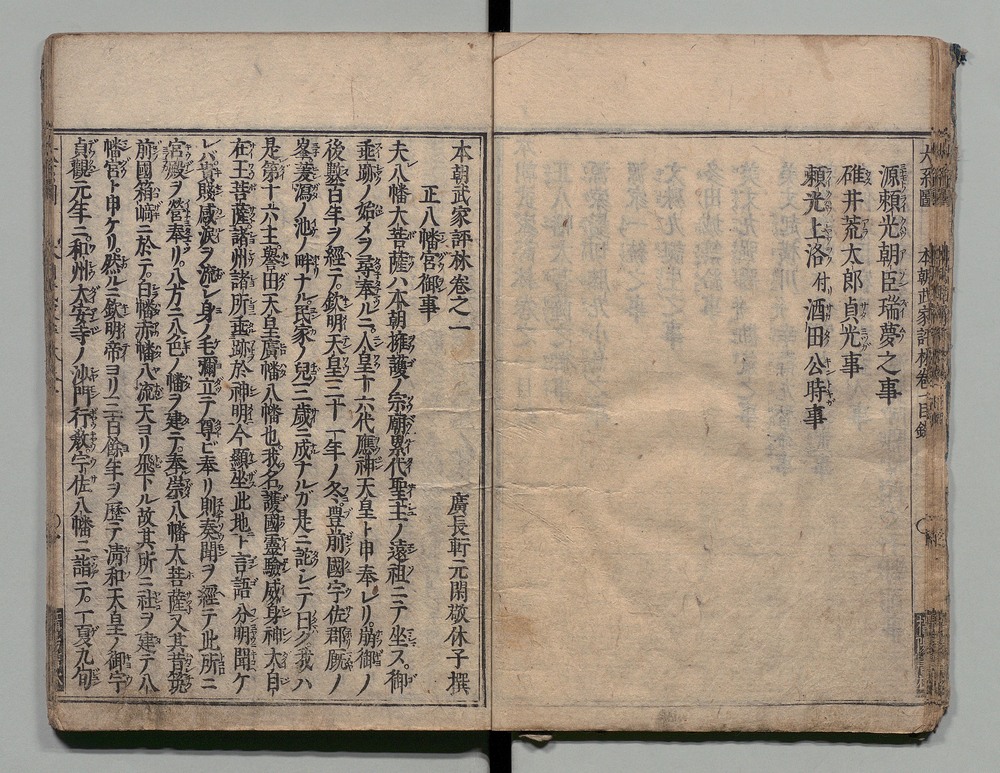 源頼光朝臣瑞夢之事
碓井荒太郎貞光事
頼光上洛付酒田公時事
本朝武家評林卷之一
廣長軒元閑敬休子撰
正八幡宮御事
夫八幡大菩薩ハ本朝擁護ノ宗廟累代聖主ノ遠祖ニテ坐ス御
垂跡ノ始メヲ尋奉ルニ人皇十六代應神天皇ト申奉レリ崩御ノ
後數百年ヲ經テ欽明天皇三十一年ノ冬豊前國宇佐郡厩ノ
峯菱瀉ノ池ノ畔ナル民家ノ兒三歳ニ成ナルガ是ニ詫シテ曰ク我ハ
是第十六主譽田天皇廣幡八幡也我名護國靈驗威身神大自
在王菩薩諸州諸所垂跡於神明今顯坐此地ト言語分明聞ケ
レバ貴賤感涙ヲ流シ身ノ毛彌立テ尊ビ奉リ則奏聞ヲ經テ此所ニ
宮殿ヲ營奉リ八方ニ八色ノ幡ヲ建テ奉崇八幡大菩薩又其昔筑
前國箱﨑ニ於テ白幡赤幡八流天ヨリ飛下ル故其所ニ社ヲ建テ八
幡宮ト申ケリ然ルニ欽明帝ヨリ三百餘年ヲ歴テ清和天皇ノ御宇
貞觀元年ニ和州大安寺ノ沙門行敎宇佐八幡ニ詣テ一夏九旬